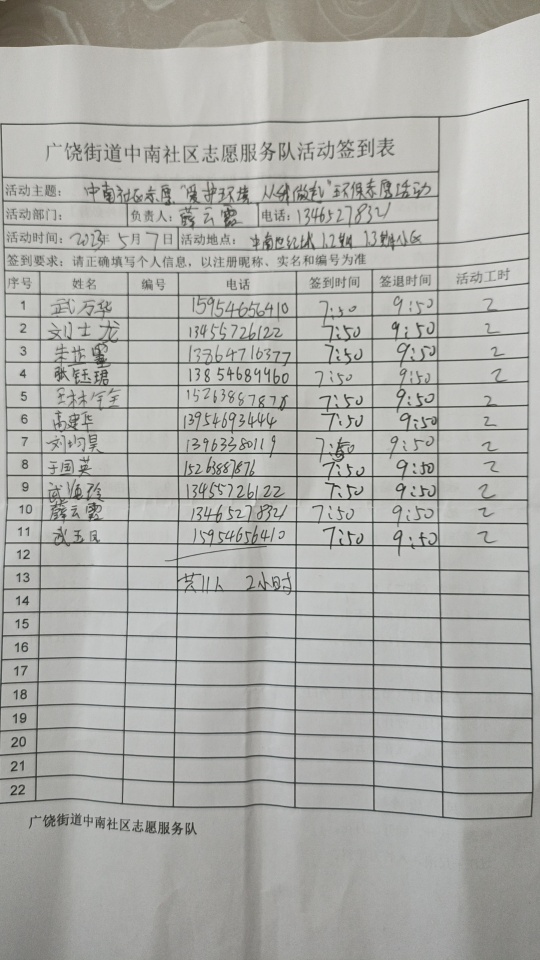 广饶街道中南社区志愿服务队活动签到表
活动主题： 中南社区志愿"爱护环境 从我做起"环保志愿活动
活动部门： 负责人：薛云霞 电话：13465278321
活动时间：2023年5月7日 活动地点： 中南世纪城 1.2期 1.3期小区
签到要求：请正确填写个人信息，以注册昵称、实名和编号为准
序号 姓名 编号 电话 签到时间 签退时间 活动工时
1 武万华 15954656410 7:50 9:50 2
2 刘士龙 13455726122 7:50 9:50 2
3 朱芷 13864716377 7:50 9:50 2
4 张钰珺 13854689960 7:50 9:50 2
5 15263887876 7:50 9:50 2
6 高建华 13954693444 7:50 9:50 2
7 刘均昊 13963380119 7:50 9:50 2
8 于国英 15263887876 7:50 9:50 2
9 武海玲 13455726122 7:50 9:50 2
10 薛云霞 13465278321 7:50 9:50 2
11 武玉凤 15954656410 7:50 9:50 2
12
13 共11人 2小时
14
15
16
17
18
19
20
21
22
广饶街道中南社区志愿服务队